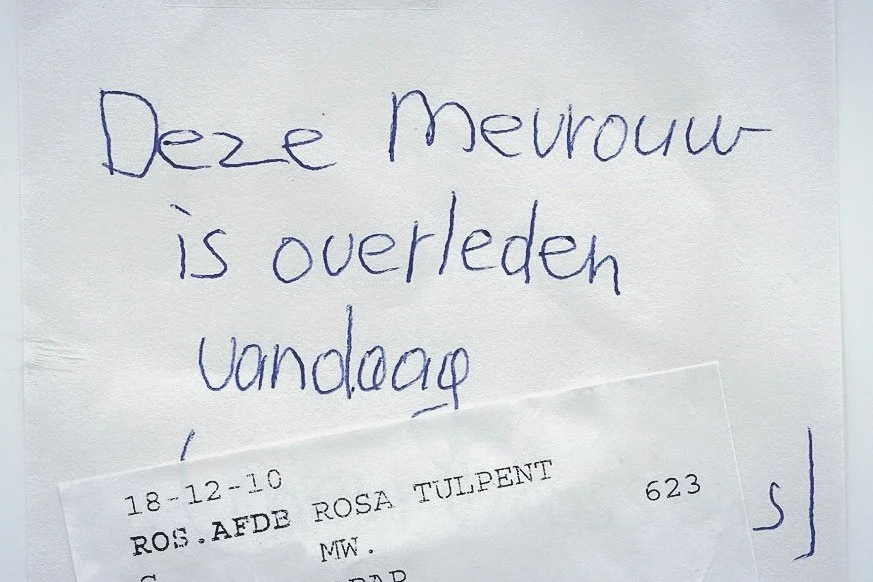 Deze Mevrouw
is overleden
vandaag
18-12-10
ROS.AFDB ROSA TULPENT 623
MW.